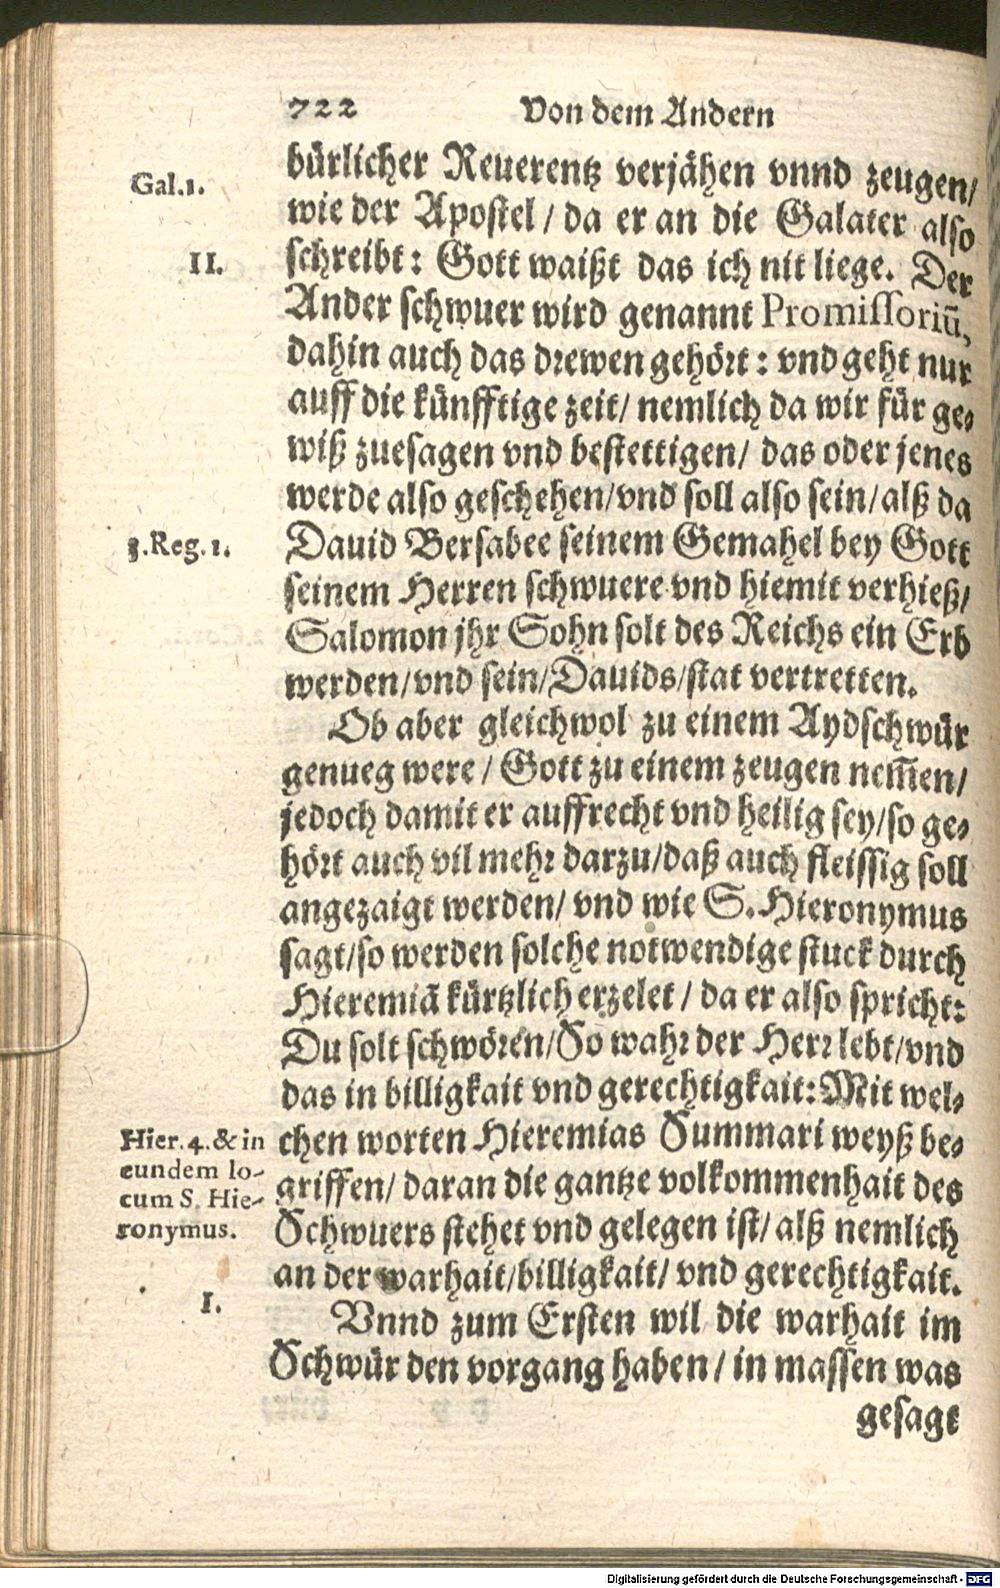 722 Von dem Andern
bürlicher Reuerentz verjähen vnnd zeugen/
Gal.1.
wie der Apostel / da er an die Galater also
schreibt: Gott waißt das ich nit liege. Der
II.
Ander schwuer wird genannt Promissoriū,
dahin auch das drewen gehört: vnd geht nur
auff die künfftige zeit/ nemlich da wir für ge-
wiß zuesagen vnd bestettigen/ das oder jenes
werde also geschehen/vnd soll also sein/alß da
Dauid Bersabee seinem Gemahel bey Gott
3.Reg.1.
seinem Herren schwuere vnd hiemit verhieß/
Salomon jhr Sohn solt des Reichs ein Erb
werden/vnd sein/Dauids/stat vertretten.
Ob aber gleichwol zu einem Aydschwür
genueg were / Gott zu einem zeugen nem̄en/
jedoch damit er auffrecht vnd heilig sey/so ge-
hört auch vil mehr darzu/daß auch fleissig soll
angezaigt werden/ vnd wie S. Hieronymus
sagt/so werden solche notwendige stuck durch
Hieremiā kürtzlich erzelet / da er also spricht:
Du solt schwören/So wahr der Herr lebt/vnd
das in billigkait vnd gerechtigkait: Mit wel-
chen worten Hieremias Summari weyß be-
Hier. 4. & in
eundem lo-
cum S. Hie-
ronymus.
griffen/ daran die gantze volkommenhait des
Schwuers stehet vnd gelegen ist/ alß nemlich
an der warhait/billigkait/ vnd gerechtigkait.
I.
Vnnd zum Ersten wil die warhait im
Schwür den vorgang haben / in massen was
gesagt
Digitalisierung gefördert durch die Deutsche Forschungsgemeinschaft - DFG